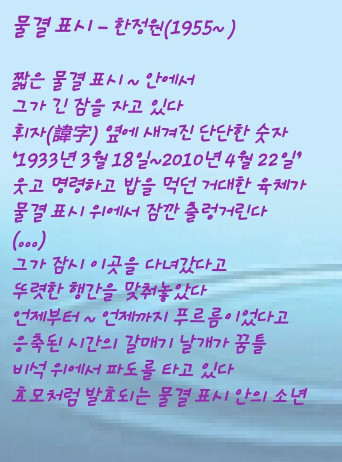 물결 표시 – 한정원(1955~ )
짧은 물결 표시 ~ 안에서
그가 긴 잠을 자고 있다
휘자(諱字) 옆에 새겨진 단단한 숫자
‘1933년 3월 18일~2010년 4월 22일’
웃고 명령하고 밥을 먹던 거대한 육체가
물결 표시 위에서 잠깐 출렁거린다
(...)
그가 잠시 이곳을 다녀갔다고
뚜렷한 행간을 맞춰놓았다
언제부터 ~ 언제까지 푸르름이었다고
응축된 시간의 갈매기 날개가 꿈틀
비석 위에서 파도를 타고 있다
효모처럼 발효되는 물결 표시 안의 소년